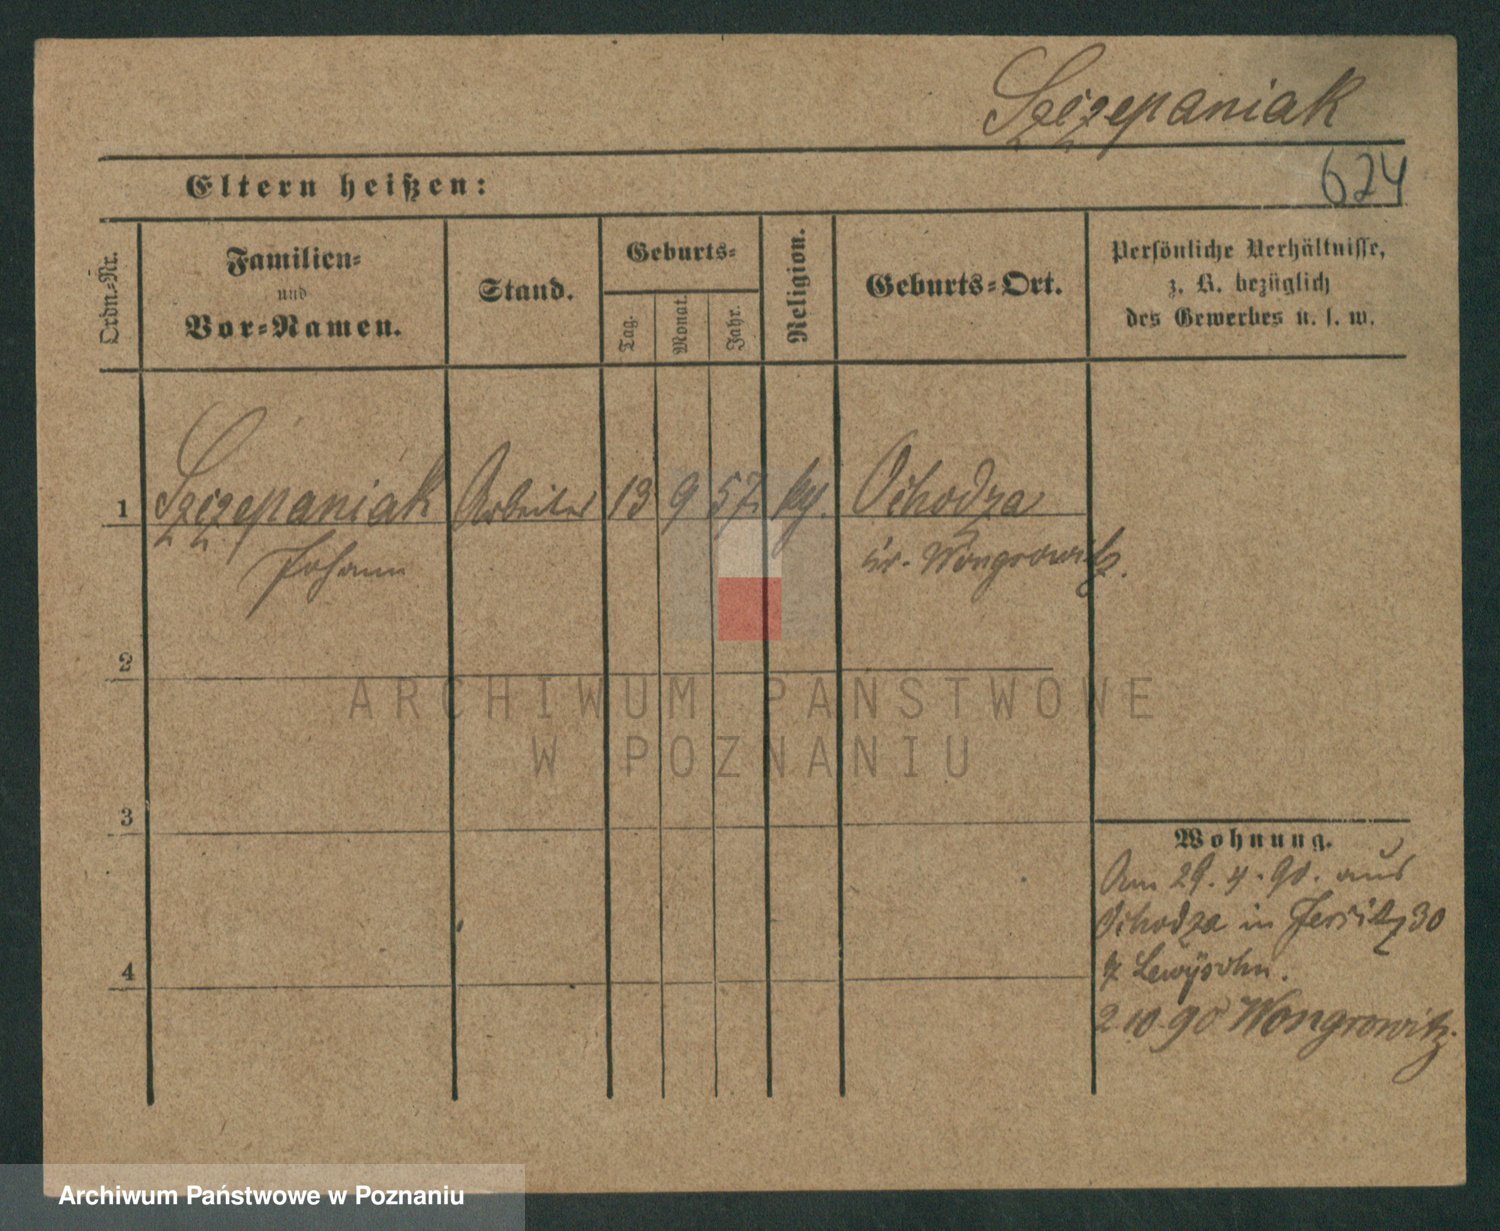 Szczepaniak
624
Eltern heißen:
Ordn.-Nr.
Familien-
und
Vor-Namen.
Stand.
Geburts-
Tag.
Monat.
Jahr.
Religion.
Geburts-Ort.
Persönliche Verhältnisse,
z. B. bezüglich
des Gewerbes u. s. w.
1 Szczepaniak Arbeiter 13 9 57. Ochodza
Johann
Kr. Wongrowitz.
2
ARCHIWUM PAŃSTWOWE
W POZNANIU
3
Wohnung.
Am 29.4.90. aus
Ochodza in Jersitz 30
Lewysohn.
4
2 10 90 Wongrowitz.
Archiwum Państwowe w Poznaniu